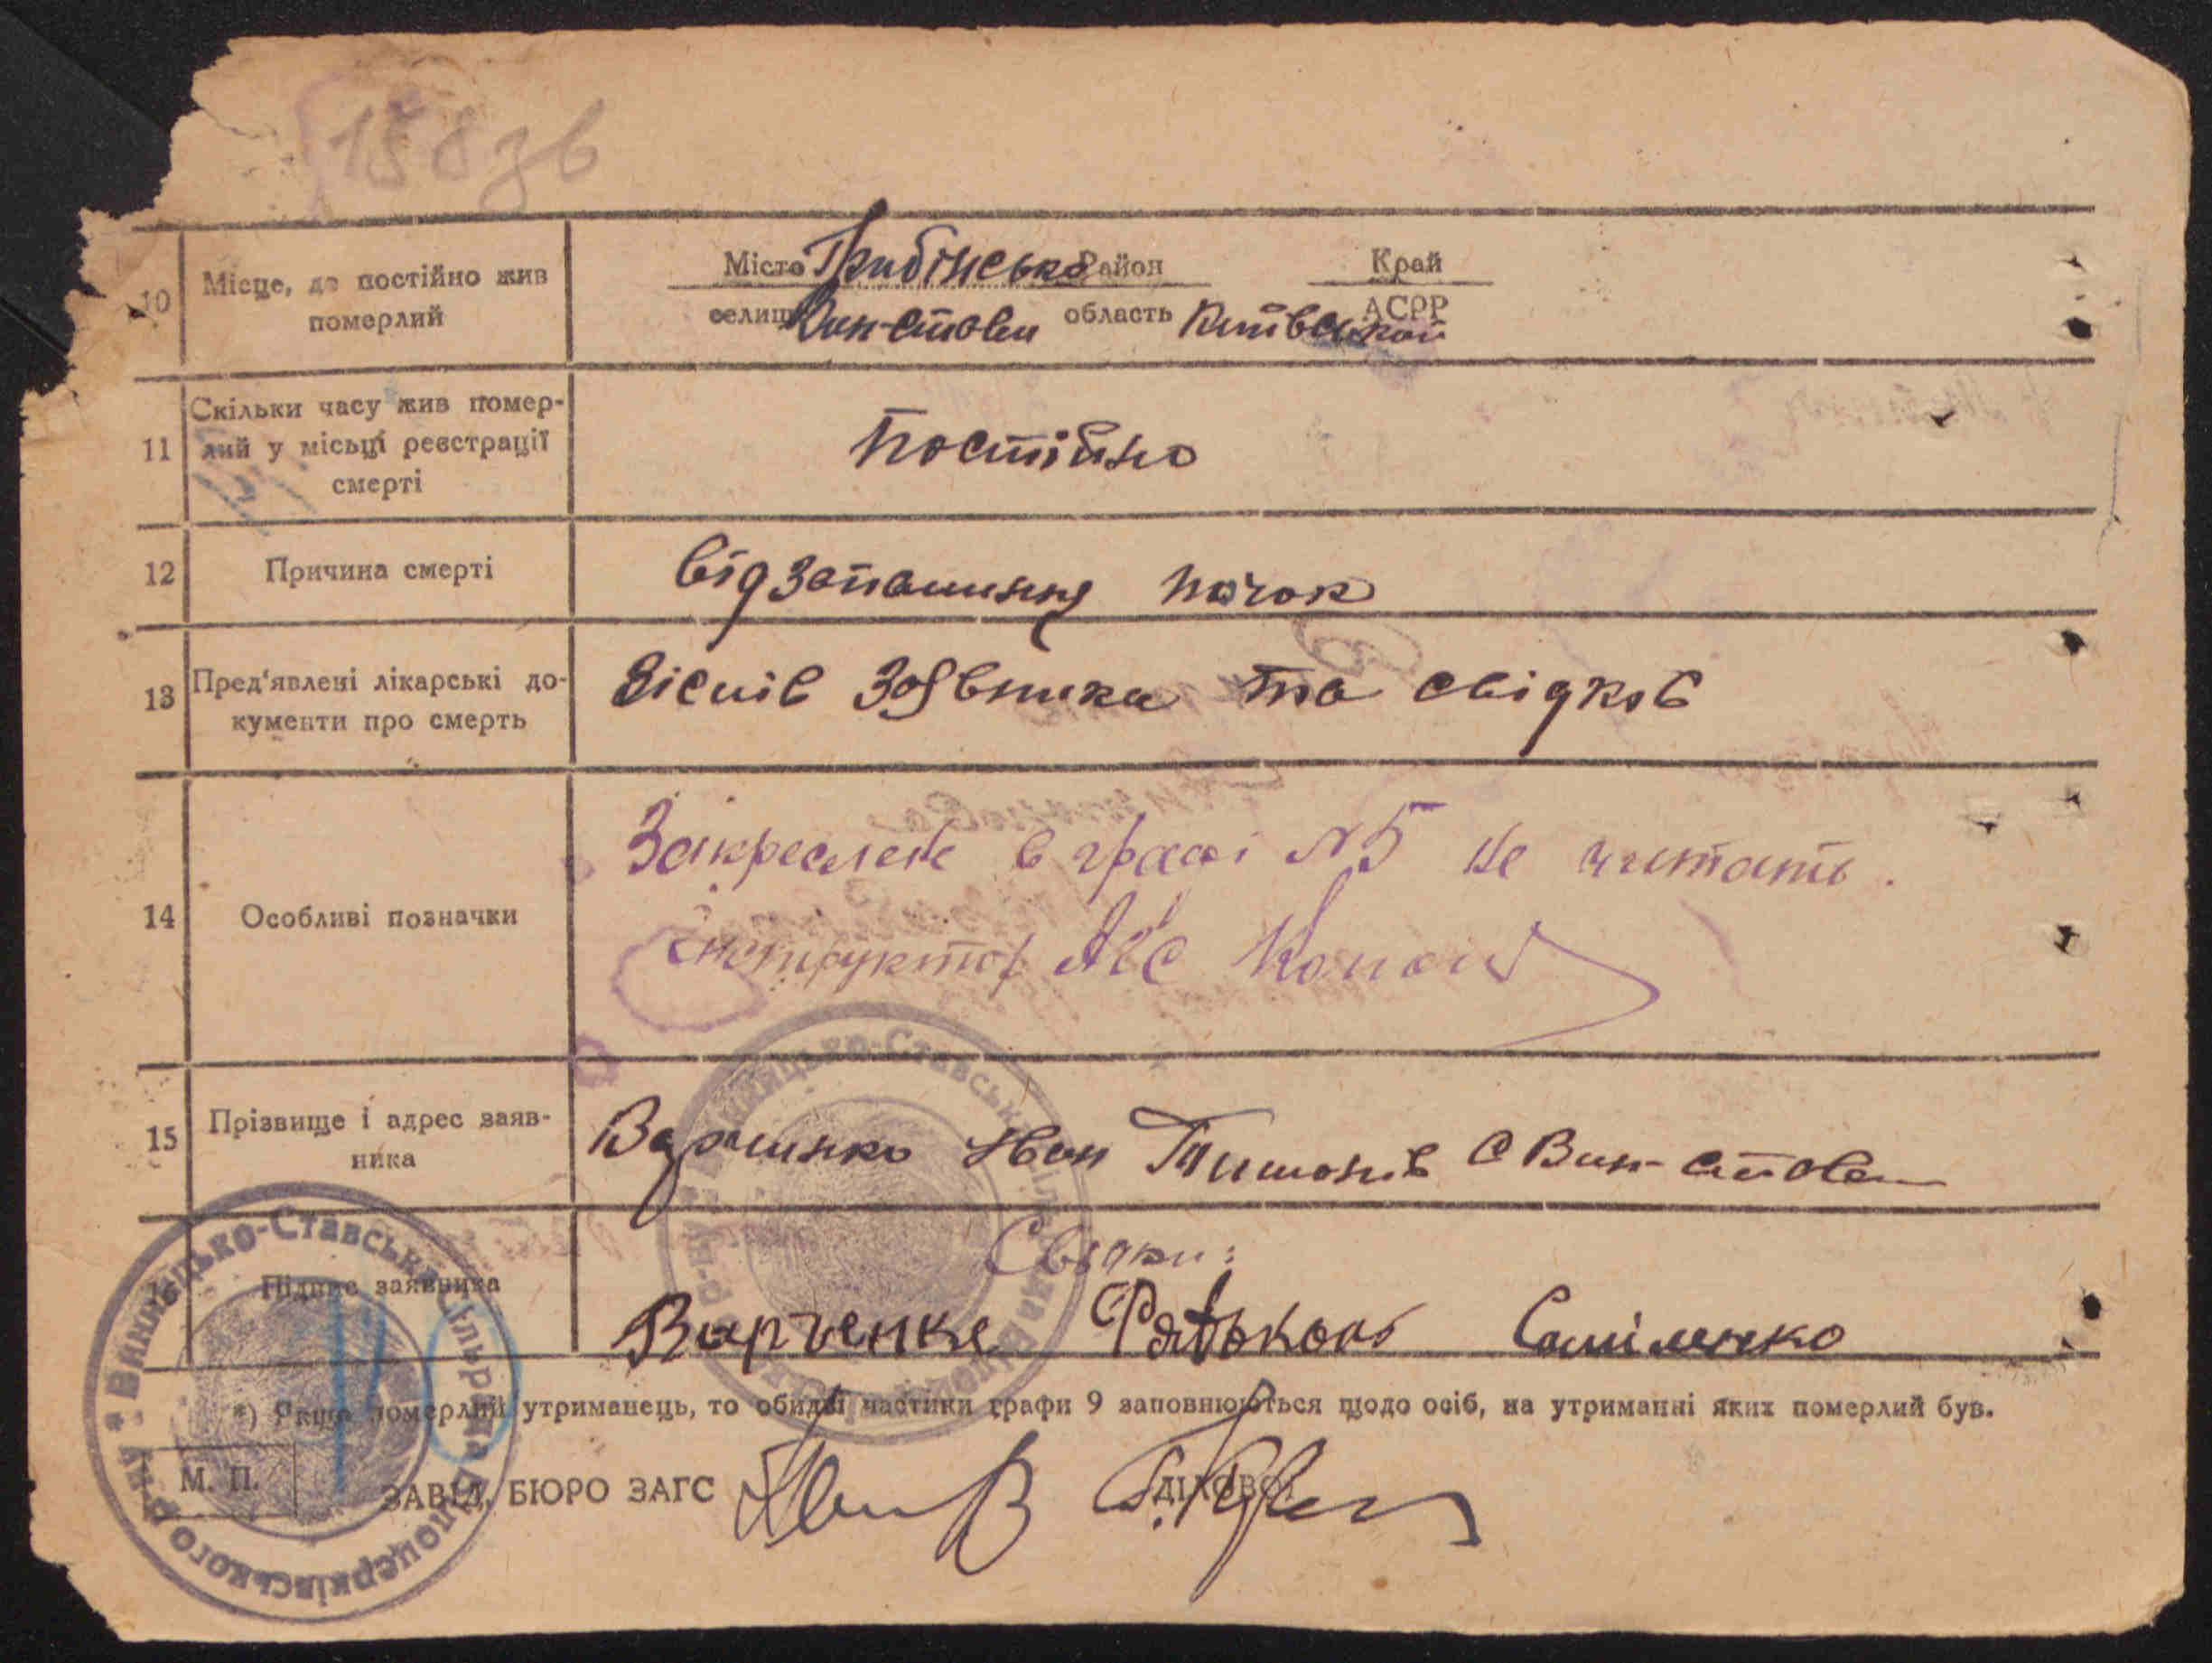 158 зв
10 Місце, де постійно жив померлий
Місто Гребінсько Район Край
селище Вин-стави область Київської АСРР
11 Скільки часу жив помер-
лий у місьці реєстрації
смерті
постійно
12 Причина смерті від запалиння почок
13 Пред'явлені лікарські до-
кументи про смерть
Зіслів заявника та свідків
14 Особливі позначки
Закреслене в графі №5 не читать.
Інструктор АГС
15 Прізвище і адрес заяв-
ника
Іван Тимошів с Вин-стави
Свідки:
16 Підпис заявника
*) Якщо померлий утриманець, то обидві частини графи 9 заповнюються щодо осіб, на утриманні яких померлий був.
М. П.
ЗАВІД. БЮРО ЗАГС ДІЛОВОД
Винницько-Ставська сільрада Білоцерківського р-ну
Винницько-Ставська сільрада Білоцерківського р-ну